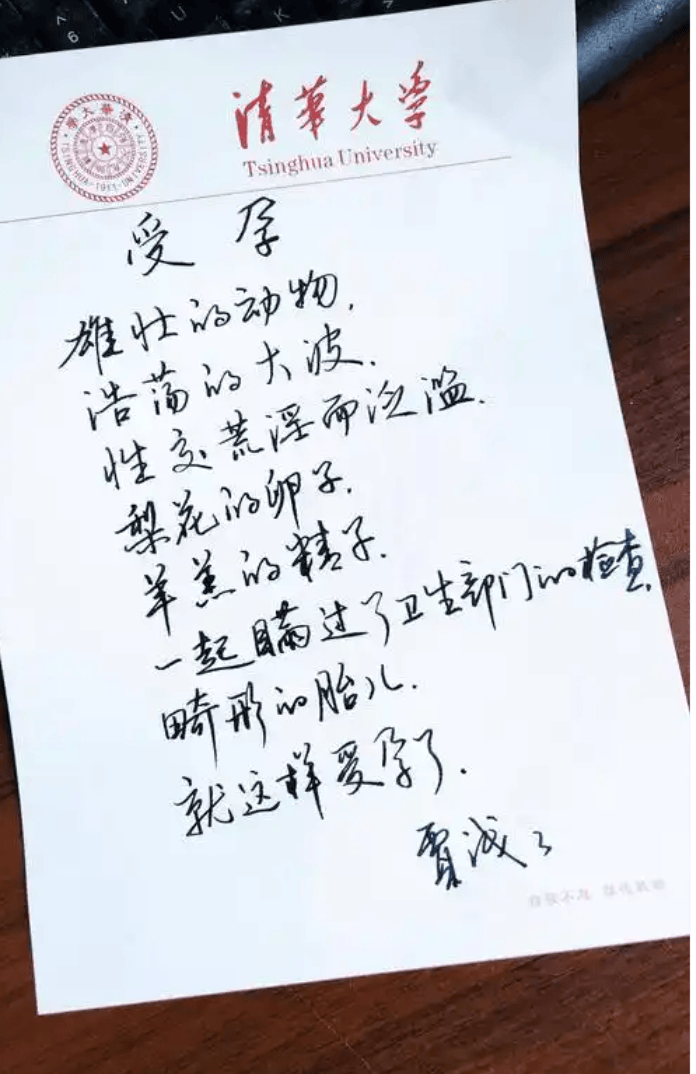 清華大学
Tsinghua University
學大華清
TSINGHUA-1911-UNIVERSITY
受孕
雄壮的动物.
浩荡的大波.
性交荒淫而泛滥.
梨花的卵子.
羊羔的精子.
一起瞒过了卫生部门的检查.
畸形的胎儿.
就这样受孕了.
贾浅浅
自强不息 厚德载物